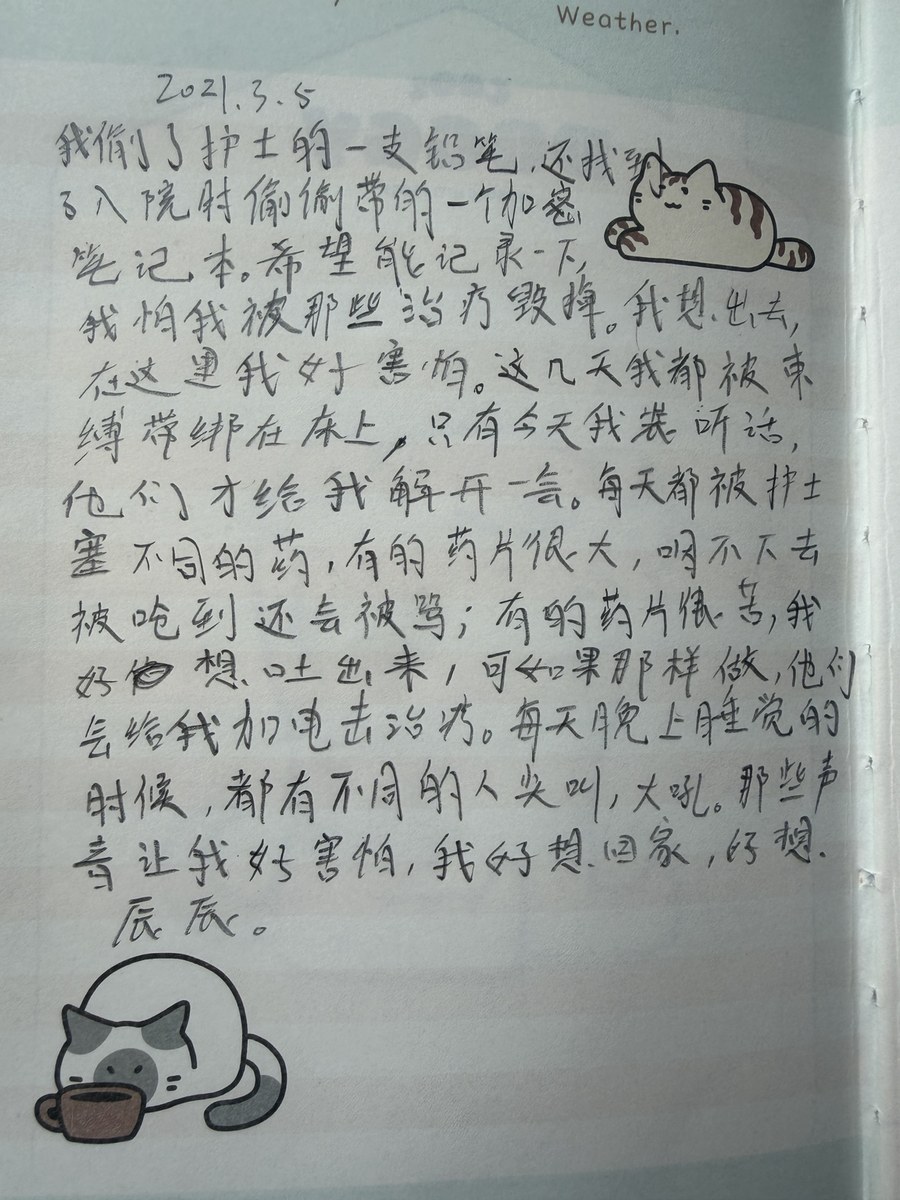 Weather.
2021.3.5
我偷了护士的一支铅笔,还找到
了入院时偷偷带的一个加密
笔记本。希望能记录一下,
我怕我被那些治疗毁掉。我想出去,
在这里我好害怕。这几天我都被束
缚带绑在床上,只有今天我装听话,
他们才给我解开一会。每天都被护士
塞不同的药,有的药片很大,咽不下去
被呛到还会被骂;有的药片很苦,我
好想吐出来,可如果那样做,他们
会给我加电击治疗。每天晚上睡觉的
时候,都有不同的人尖叫,大吼。那些声
音让我好害怕,我好想回家,好想
辰辰。